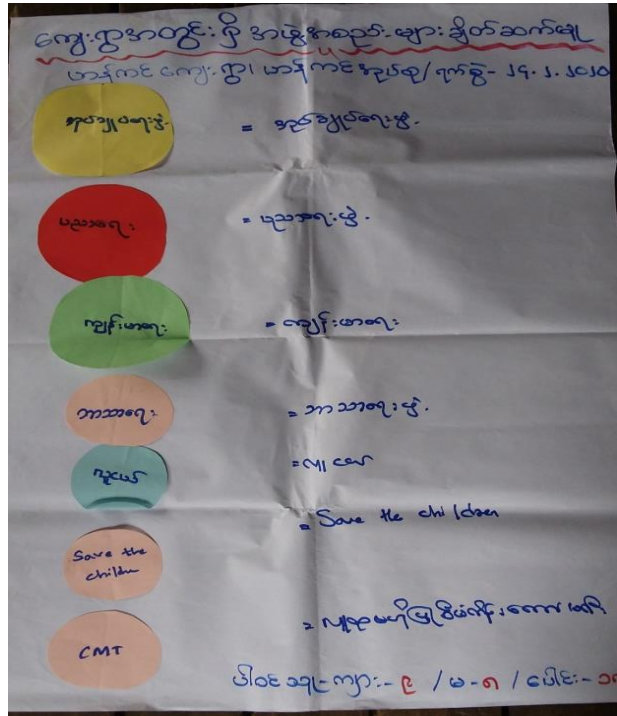 ကျေးရွာအတွင်းရှိ အဖွဲ့အစည်းများ ချိတ်ဆက်မှု
ဟန်ကင်းကျေးရွာ၊ ဟန်ကင်းအုပ်စု/ ရက်စွဲ-
အုပ်ချုပ်ရေးမှုး = အုပ်ချုပ်ရေးမှုး
ပညာရေး = ပညာရေးအဖွဲ့
ကျန်းမာရေး = ကျန်းမာရေး
ဘာသာရေး = ဘာသာရေးအဖွဲ့
လူငယ် = လူငယ်
Save the children = Save the children
CMT =
ပါဝင်သူ - ကျား - ၉ / မ - ၈ / ပေါင်း -